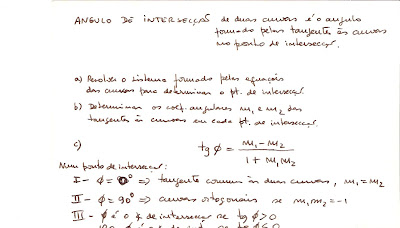 ANGULO DE INTERSECÇÃO de duas curvas é o angulo
formado pelas tangentes às curvas
no ponto de intersecção.
a) Resolver o sistema formado pelas equações
das curvas para determinar o pt. de intersecção
b) Determinar os coef. angulares m₁ e m₂ das
tangentes às curvas em cada pt. de intersecção.
c) tg φ = (m₁ - m₂) / (1 + m₁ m₂)
Num ponto de intersecção:
I - φ = 0° => tangente comum às duas curvas, m₁ = m₂
II - φ = 90° => curvas ortogonais se m₁ m₂ = -1
III - φ é o ∢ de intersecção se tg φ > 0